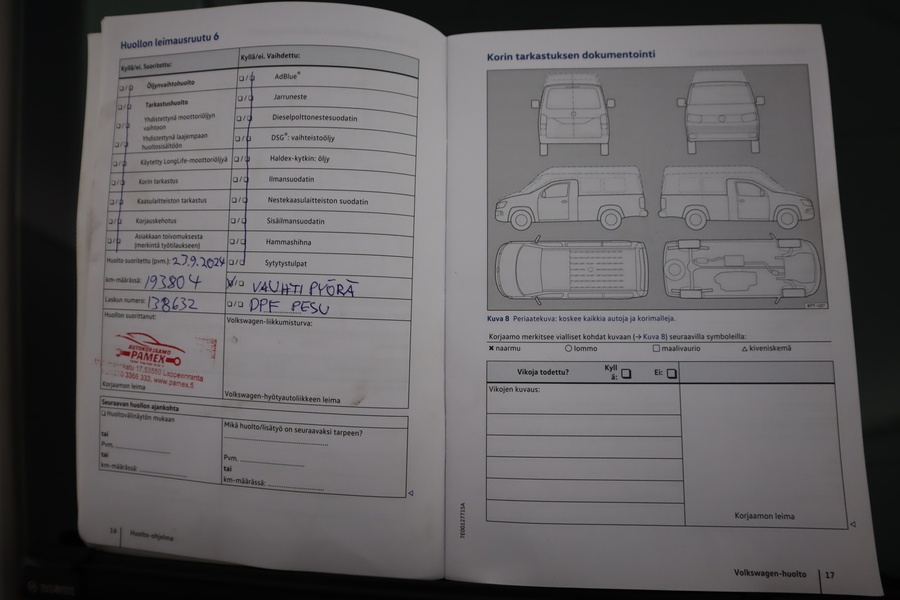 Huollon leimausruutu 6
Kyllä/ei. Suoritettu: Kyllä/ei. Vaihdettu:
Öljynvaihtohuolto AdBlue®
Tarkastushuolto Jarruneste
Yhdistettynä moottoriöljyn vaihtoon Dieselpolttonestesuodatin
Yhdistettynä laajempaan huoltosisältöön DSG®: vaihteistoöljy
Käytetty LongLife-moottoriöljyä Haldex-kytkin: öljy
Korin tarkastus Ilmansuodatin
Kaasulaitteiston tarkastus Nestekaasulaitteiston suodatin
Korjauskehotus Sisäilmansuodatin
Asiakkaan toivomuksesta (merkintä työtilaukseen) Hammashihna
Huolto suoritettu (pvm.): 23.9.2024 Sytytystulpat
km-määrässä: 193804 VAUHTIPYÖRÄ
Laskun numero: 138632 DPF PESU
Huollon suorittanut: Volkswagen-liikkumisturva:
PAMEX
katu 17, 53550 Lappeenranta
3366 333, www.pamex.fi
Korjaamon leima Volkswagen-hyötyautoliikkeen leima
Seuraavan huollon ajankohta
Huoltovälinäytön mukaan Mikä huolto/lisätyö on seuraavaksi tarpeen?
tai
Pvm. Pvm.
tai tai
km-määrässä: km-määrässä:
16 Huolto-ohjelma
Korin tarkastuksen dokumentointi
Kuva 8 Periaatekuva: koskee kaikkia autoja ja korimalleja.
Korjaamo merkitsee vialliset kohdat kuvaan (→ Kuva 8) seuraavilla symboleilla:
naarmu lommo maalivaurio kiveniskemä
Vikoja todettu? Kyllä: Ei:
Vikojen kuvaus:
Korjaamon leima
7E0012771SA
Volkswagen-huolto 17